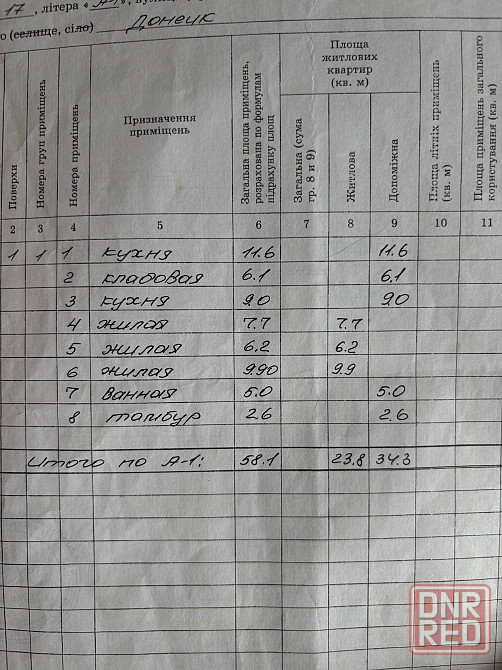 17, літера «А-1»,
о (селище, сіло) Донецк
Поверхи
Номера груп приміщень
Номера приміщень
Призначення приміщень
Загальна площа приміщень, розрахована по формулам підрахунку площ
Площа житлових квартир (кв. м)
Загальна (сума гр. 8 и 9)
Житлова
Допоміжна
Площа літніх приміщень (кв. м)
Площа приміщень загального користування (кв. м)
2 3 4 5 6 7 8 9 10 11
1 1 1 кухня 11.6 11.6
2 кладовая 6.1 6.1
3 кухня 9.0 9.0
4 жилая 7.7 7.7
5 жилая 6.2 6.2
6 жилая 9.90 9.9
7 ванная 5.0 5.0
8 тамбур 2.6 2.6
Итого по А-1: 58.1 23.8 34.3
DNR
RED